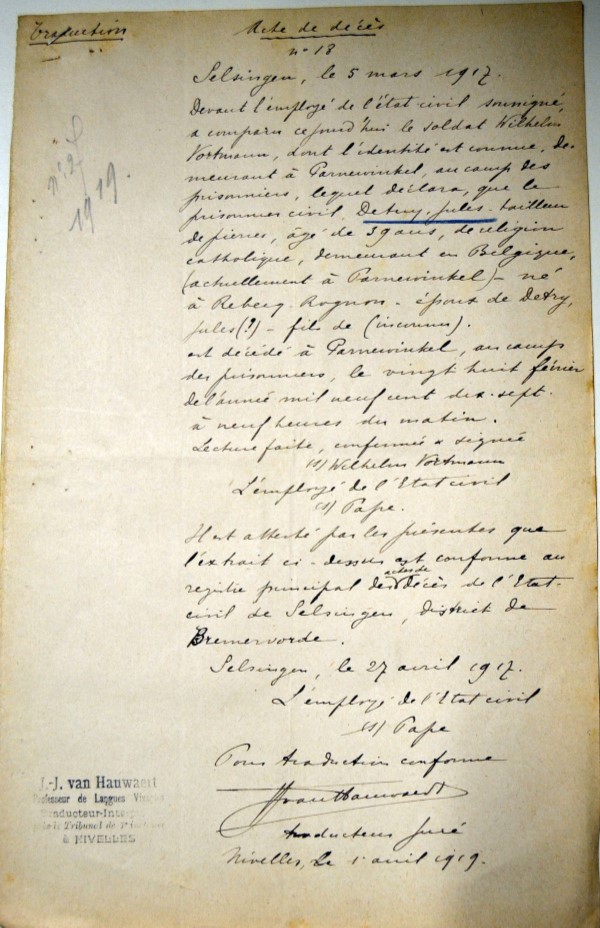 Traduction
Acte de décès
n° 18
n° 27
1919.
Selsingen, le 5 mars 1917.
Devant l'employé de l'état-civil soussigné,
a comparu cejourd'hui le soldat Wilhelm
Vortmann, dont l'identité est connue, de-
meurant à Parnewinkel, au camp des
prisonniers, lequel déclara, que le
prisonnier civil Detry, Jules tailleur
de pierres, âgé de 39 ans, de religion
catholique, demeurant en Belgique,
(actuellement à Parnewinkel) - né
à Rebecq-Rognon - époux de Detry,
Jules (?) - fils de (inconnus).
est décédé à Parnewinkel, au camp
des prisonniers, le vingt huit février
de l'année mil neuf cent dix-sept.
à neuf heures du matin.
Lecture faite, confirmée & signée
(s/) Wilhelm Vortmann
L'employé de l'Etat civil
(s/) Pape.
Il est attesté par les présentes que
l'extrait ci-dessus est conforme au
registre principal des actes de décès de l'Etat-
civil de Selsingen, district de
Bremervorde.
Selsingen, le 27 avril 1917.
L'employé de l'Etat civil
(s/) Pape
Pour traduction conforme
JJvanHauwaert
traducteur juré
Nivelles, le 1 avril 1919.
J.-J. van Hauwaert
Professeur de Langues
Traducteur-
le Tribunal de 1re
à NIVELLES